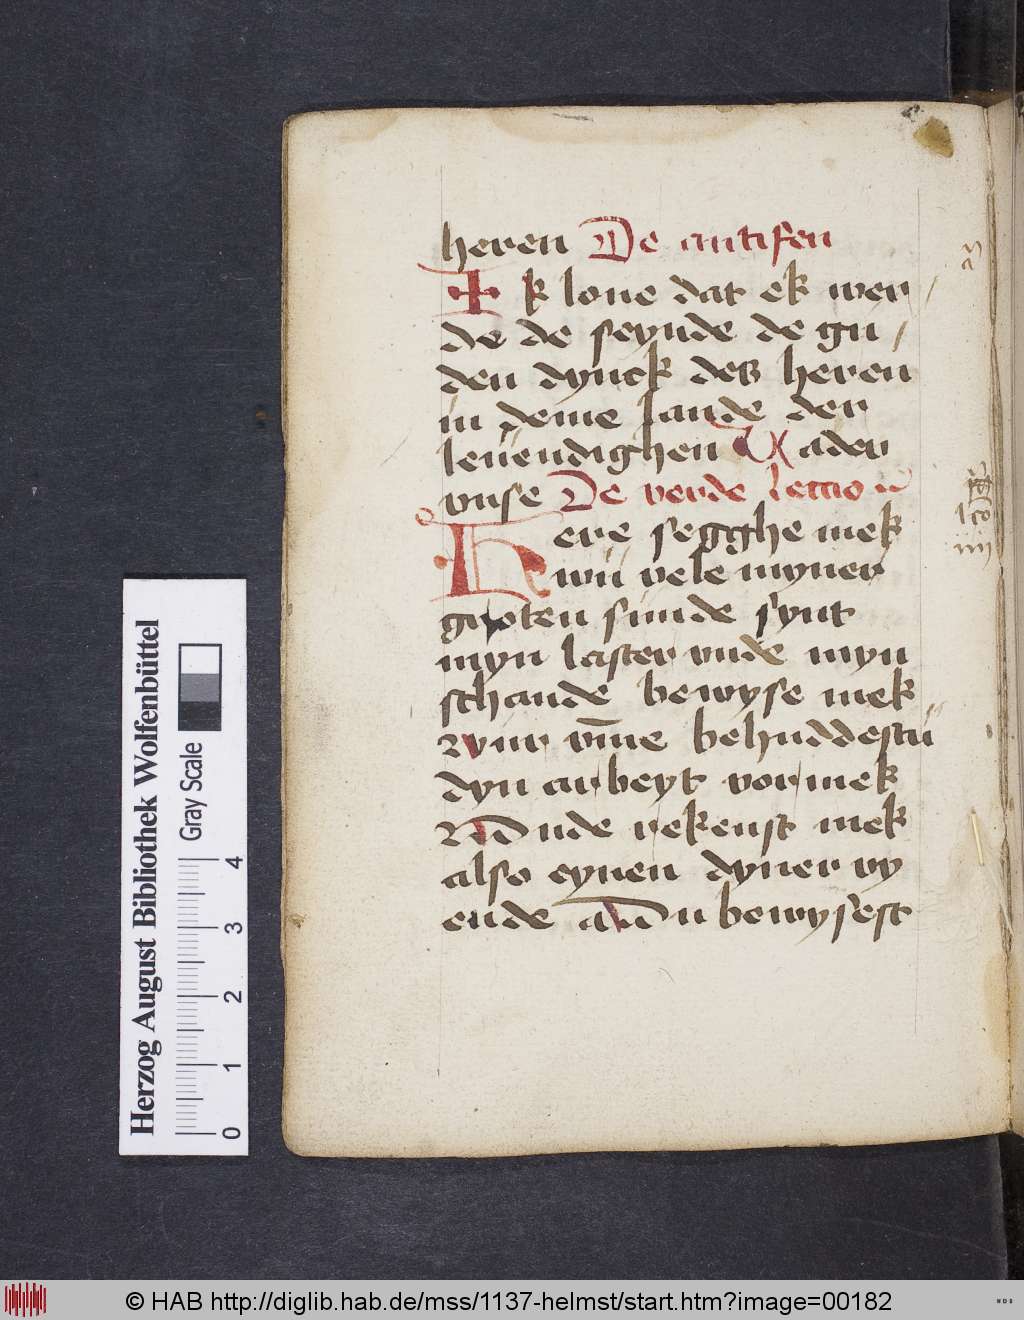 heren De antifen
Ik loue dat ek wer
de de seynde de gu
den dynck des heren
in deme lande der
leuendighen Vader
vnse De verde lectio
Here segghe mek
wu vele myner
groten sunde synt
myn laster vnde myn
schande bewyse mek
Wur vm̄e behuddestu
dyn arbeyt vor mek
Vnde rekenst mek
also eynen dyner vy
ende an du bewysest
Herzog August Bibliothek Wolfenbüttel
Gray Scale
0 1 2 3 4
© HAB http://diglib.hab.de/mss/1137-helmst/start.htm?image=00182